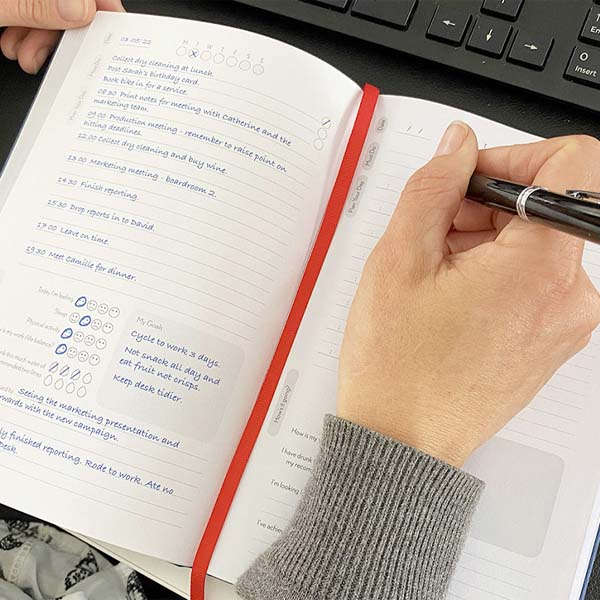 M T W T F S S
Date 03/05/22
Must Do Collect dry cleaning at lunch.
Post Sarah's birthday card.
Book bike in for a service.
Plan Your Day 08:30 Print notes for meeting with Catherine and the
marketing team.
09:00 Production meeting - remember to raise point on
hitting deadlines.
12:00 Collect dry cleaning and buy wine.
13:00 Marketing meeting - boardroom 2.
14:30 Finish reporting
15:30 Drop reports in to David.
17:00 Leave on time.
19:30 Meet Camille for dinner.
Today I'm feeling
Sleep
Physical activity
's my work / life balance?
this much water of
recommended two litres
My Goals
Cycle to work 3 days.
Not snack all day and
eat fruit not crisps.
Keep desk tidier.
Seeing the marketing presentation and
wards with the new campaign.
ly finished reporting. Rode to work. Ate no
Desk.
Date / /
Must Do
Plan Your Day
How's it going?
How is my
I have drunk
my recom
I'm looking
I've achieve
Enter
O
Insert